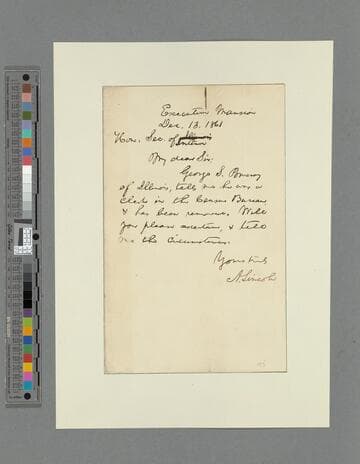 Executive Mansion
Dec. 13. 1861
Hon. Sec. of Illinois
Interior
My dear Sir;
George S.
of Illinois, tells me he was a
clerk in the Census Bureau
& has been removed. Will
you please ascertain, & tell
me the circumstances.
Yours truly
A. Lincoln